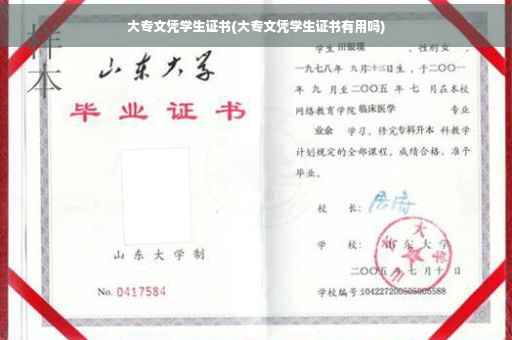 大专文凭学生证书(大专文凭学生证书有用吗)
样本
山东大学
毕业证书
山东大学制
No. 0417584
学生 田银璞 ,性别 女 ,
一九七八年 九月十三日生,于二〇〇一
年 九 月至二〇〇五 年 七 月在本校
网络教育学院 临床医学 专业
业余 学习,修完专科升本 科教学
计划规定的全部课程,成绩合格,准予
毕业。
校 长:
学 校: 山东大学
二〇〇五 年 七 月 十 日
学校编号: